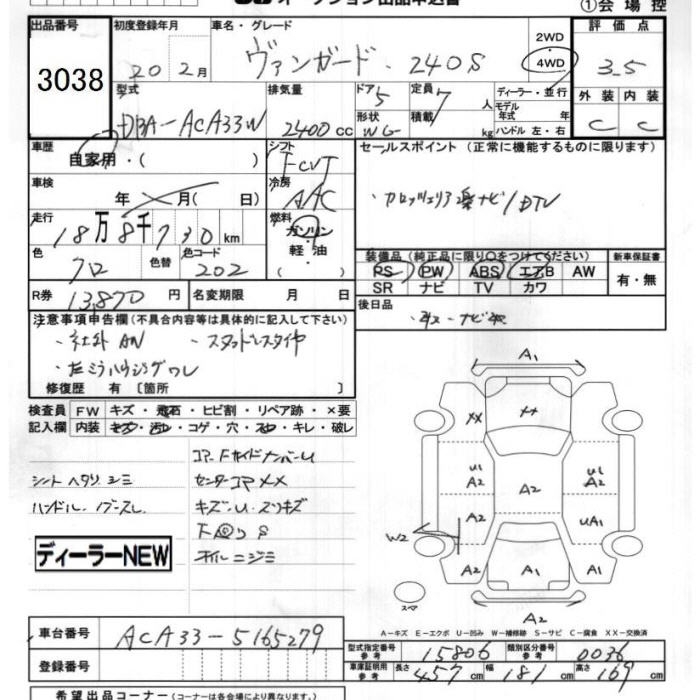 オークション出品申込書
①会場控
出品番号 初度登録年月 車名・グレード 2WD 4WD 評価点
3038 20 2月 ヴァンガード・240S 3.5
型式 排気量 ドア 5 定員 7人 ディーラー・並行 外装 内装
DBA-ACA33W 2400cc 形状 WG 積載 kg モデル年式 年式 ハンドル 左・右 C C
車歴 自家用・( ) シフト FCVT セールスポイント (正常に機能するものに限ります)
車検 年 月(日) 冷房 AAC ・カロッツェリア楽ナビ/DTV
走行 18万8千730km 燃料 ガソリン・軽油( )
色 クロ 色替 色コード 202
装備品 (純正品に限り○をつけてください) 新車保証書
PS PW ABS エアB AW 有・無
SR ナビ TV カワ
R券 13,870円 名変期限 月 日 後日品
注意事項申告欄(不具合内容等は具体的に記入して下さい)
・社外AW ・スタッドレスタイヤ
・左ミラーハウジングワレ
修復歴 有 [箇所 ]
検査員記入欄 FW キズ・飛石・ヒビ割・リペア跡・×要
内装 キズ・汚レ・コゲ・穴・スレ・キレ・破レ
シートヘタリ シミ
ハンドル・ノブスレ
コア・FサイドナンバーU
センターコアXX
キズ・U・スリキズ
下回りS
オイルニジミ
ディーラーNEW
A1
XX
U1
A2
A2
U1
A2
A2
W2
UA1
A2
A2
A1
スペア
A2
A-キズ E-エクボ U-凹み W-補修跡 S-サビ C-腐食 XX-交換済
車台番号 ACA33-5165279
型式指定番号 参考 15806 類別区分番号 参考 0036
登録番号
車庫証明用 参考 長さ 457cm 幅 181cm 高さ 169cm
希望出品コーナー (コーナーは各会場により異なります)